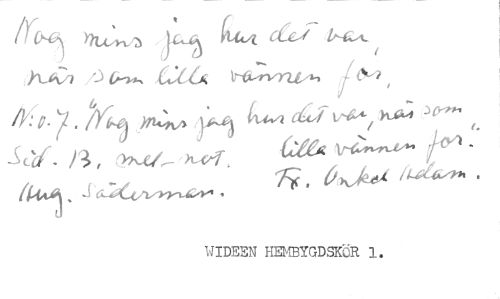 Nog mins jag hur det var,
när som lilla vännen for,
N:o. 7. "Nog mins jag hur det var, när som
lilla vännen for."
Sid. 13. mel-not.
Aug. Söderman. Tx. Onkel Adam.
WIDEEN HEMBYGDSKÖR 1.